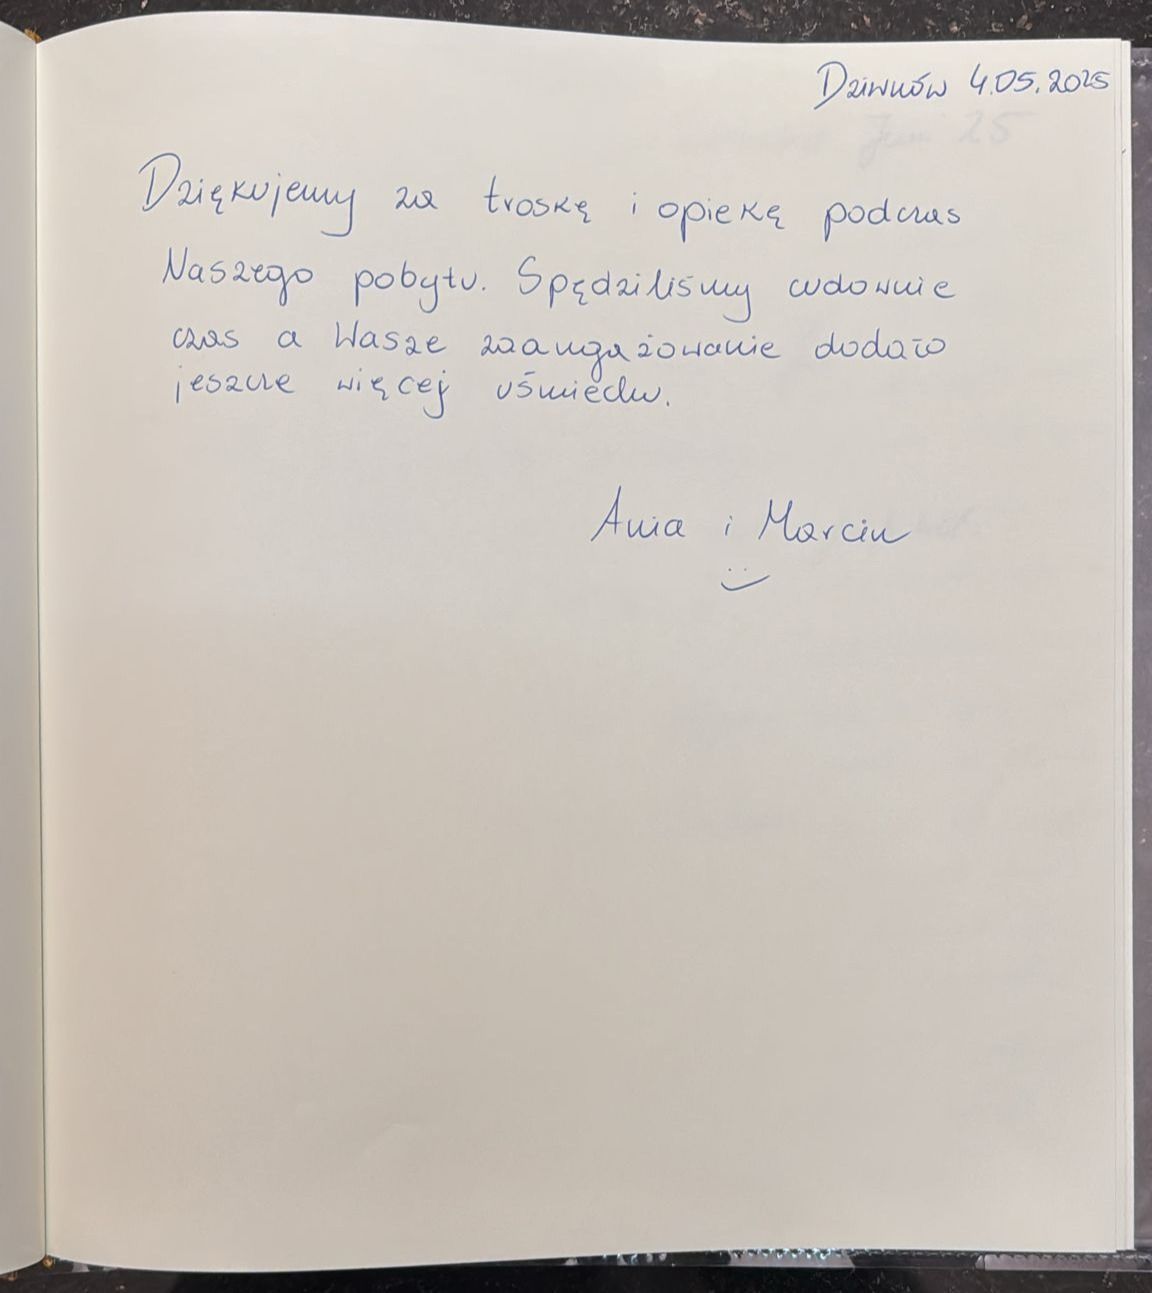 Dziwnów 4.05.2025
Dziękujemy za troskę i opiekę podczas
Naszego pobytu. Spędziliśmy cudownie
czas a Wasze zaangażowanie dodało
jeszcze więcej uśmiechu.
Ania i Marcin